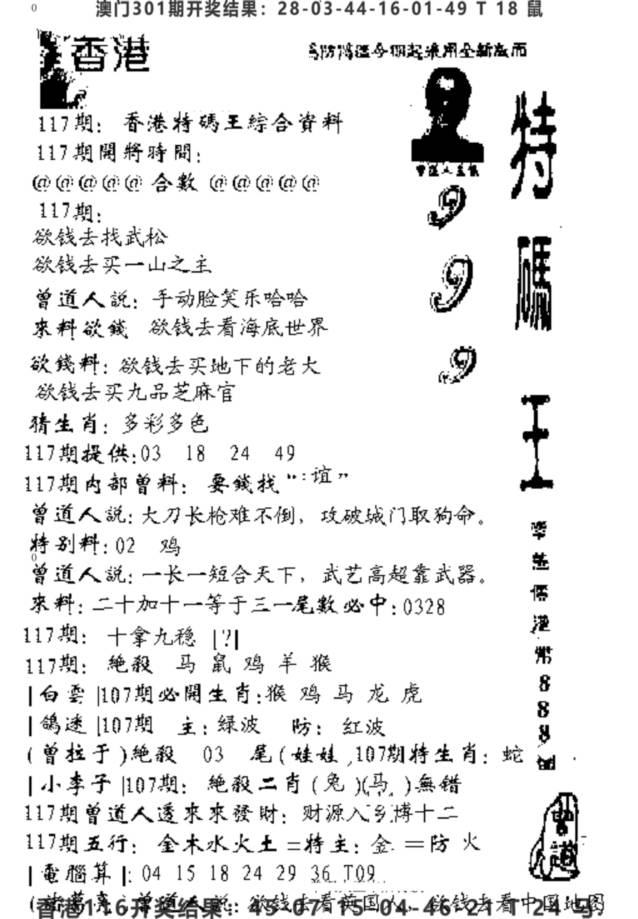 澳门301期开奖结果：28-03-44-16-01-49 T 18 鼠
香港
117期：香港特碼王綜合資料
117期開將時間：
@@@@@合數@@@@@
117期：
欲钱去找武松
欲钱去买一山之主
曾道人説：手动脸笑乐哈哈
來料欲錢 欲钱去看海底世界
欲錢料：欲钱去买地下的老大
欲钱去买九品芝麻官
猜生肖：多彩多色
117期提供:03 18 24 49
117期内部曾料：要錢找“:谊”
曾道人説:大刀长枪难不倒，攻破城门取狗命。
特别料:02 鸡
曾道人説:一长一短合天下，武艺高超靠武器。
來料:二十加十一等于三一尾數必中:0328
117期：十拿九稳 |?|
117期：絶殺 马 鼠 鸡 羊 猴
|白雲|107期必開生肖:猴 鸡 马 龙 虎
|鴿迷|107期 主:绿波 防:红波
(曾拉于)絶殺 03 尾(娃娃,107期特生肖:蛇
|小李子|107期：絶殺二肖(兔)(马)無错
117期曾道人透來來發財：财源入乡博十二
117期五行：金木水火土二特主:金.二防 火
|電腦算|:04 15 18 24 29 36.T09
香港116开奖结果：45-07-15-04-46-21 T 24 马
欲钱去看中国地图
特
碼
王
9
9
9
8
8
8